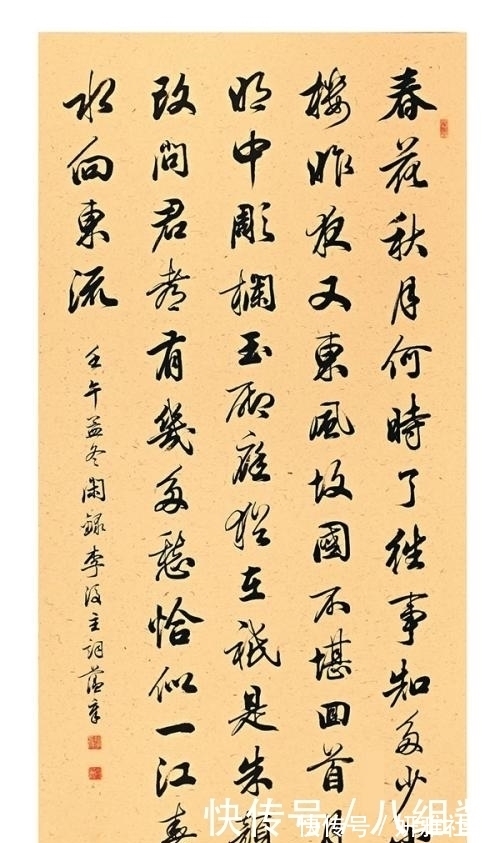 春花秋月何時了往事知多少
樓昨夜又東風故國不堪回首月
明中彫欄玉砌應猶在祇是朱顏
改問君都有幾多愁恰似一江春
水向東流
壬午孟冬閑錄李後主詞
快传号 / 八组
快传号 /